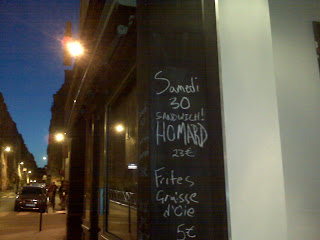 Samedi
30
SANDWICH!
HOMARD
23€
Frites
Graisse
d'Oie
5€